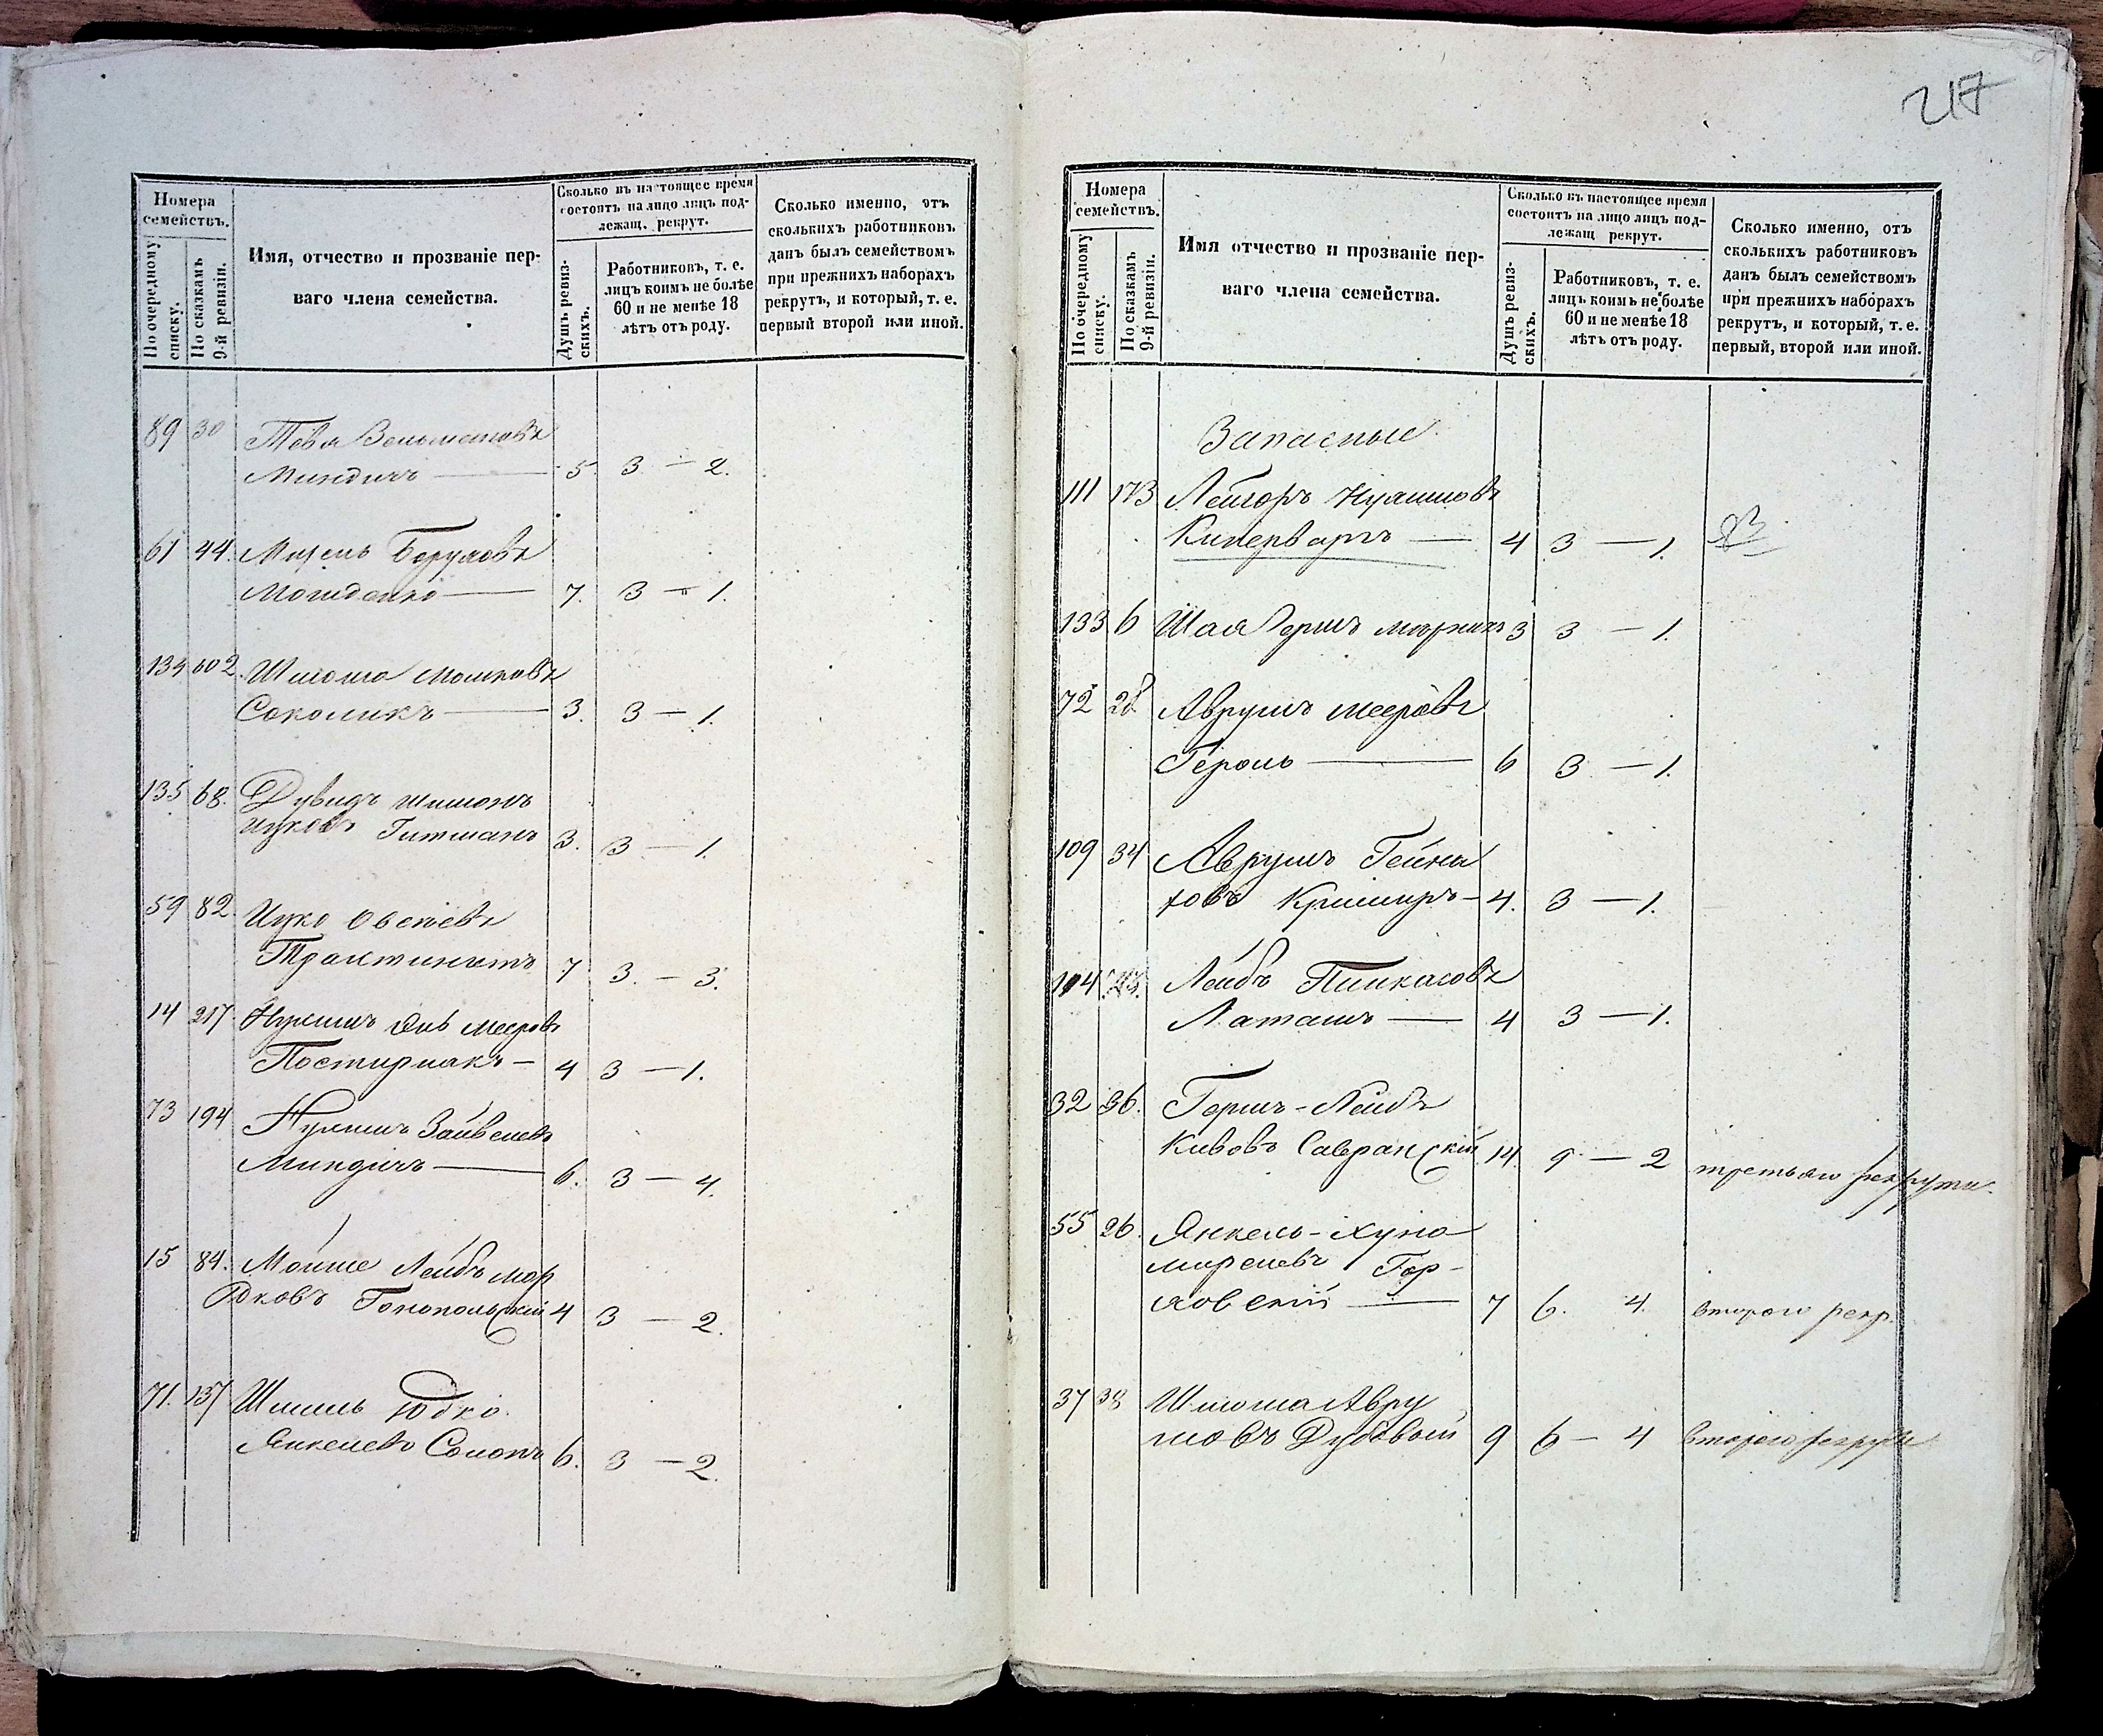 217
Номера
семействъ.
По очередному
списку.
По сказкамъ
9-й ревизіи.
Имя, отчество и прозваніе пер-
ваго члена семейства.
Сколько въ настоящее время
состоитъ на лицо лицъ под-
лежащ. рекрут.
Душъ ревиз-
скихъ.
Работниковъ, т. е.
лицъ коимъ не болѣе
60 и не менѣе 18
лѣтъ отъ роду.
Сколько именно, отъ
сколькихъ работниковъ
данъ былъ семействомъ
при прежнихъ наборахъ
рекрутъ, и который, т. е.
первый второй или иной.
89 30
Миндичъ — 5. 3 — 2.
61 44.
7. 3 — 1.
602. Шлома Мошковъ
Соколикъ — 3. 3 — 1.
135 68. Дувидъ Шимонъ
Ицковъ Гитманъ 3. 3 — 1.
59 82. Ицко
7 3. — 3.
14 217. Нухимъ Мееровъ
4 3 — 1.
73 194 Нухимъ Зайвелевъ
Миндичъ — 6. 3 — 4.
15 84. Мойше Лейбъ Мор
дковъ Гонопольскій 4 3 — 2.
71. 137 Шмиль Юдко
Янкелевъ 6. 3 — 2.
Номера
семействъ.
По очередному
списку.
По сказкамъ
9-й ревизіи.
Имя отчество и прозваніе пер-
ваго члена семейства.
Сколько въ настоящее время
состоитъ на лицо лицъ под-
лежащ рекрут.
Душъ ревиз-
скихъ.
Работниковъ, т. е.
лицъ коимъ не болѣе
60 и не менѣе 18
лѣтъ отъ роду.
Сколько именно, отъ
сколькихъ работниковъ
данъ былъ семействомъ
при прежнихъ наборахъ
рекрутъ, и который, т. е.
первый, второй или иной.
Запасные
111 173 Нухимовъ
4 3 — 1.
133 6 Шая Гершъ 3 3 — 1.
72 28 Аврумъ Мееровъ
6 3 — 1.
109 34 Аврумъ Гейна
ховъ 4. 3 — 1.
104 Лейбъ Пинкасовъ
Латашъ — 4 3 — 1.
32 36. Гершъ-Лейбъ
Кивовъ Савранскій 14. 9 — 2 третьяго рекрута.
55 26. Янкель-Хуно
Гор-
ловскій — 7 6. 4. втораго рекр.
37 38 Шлома Авру
мовъ Дубовый 9 6 — 4 втораго рекрута